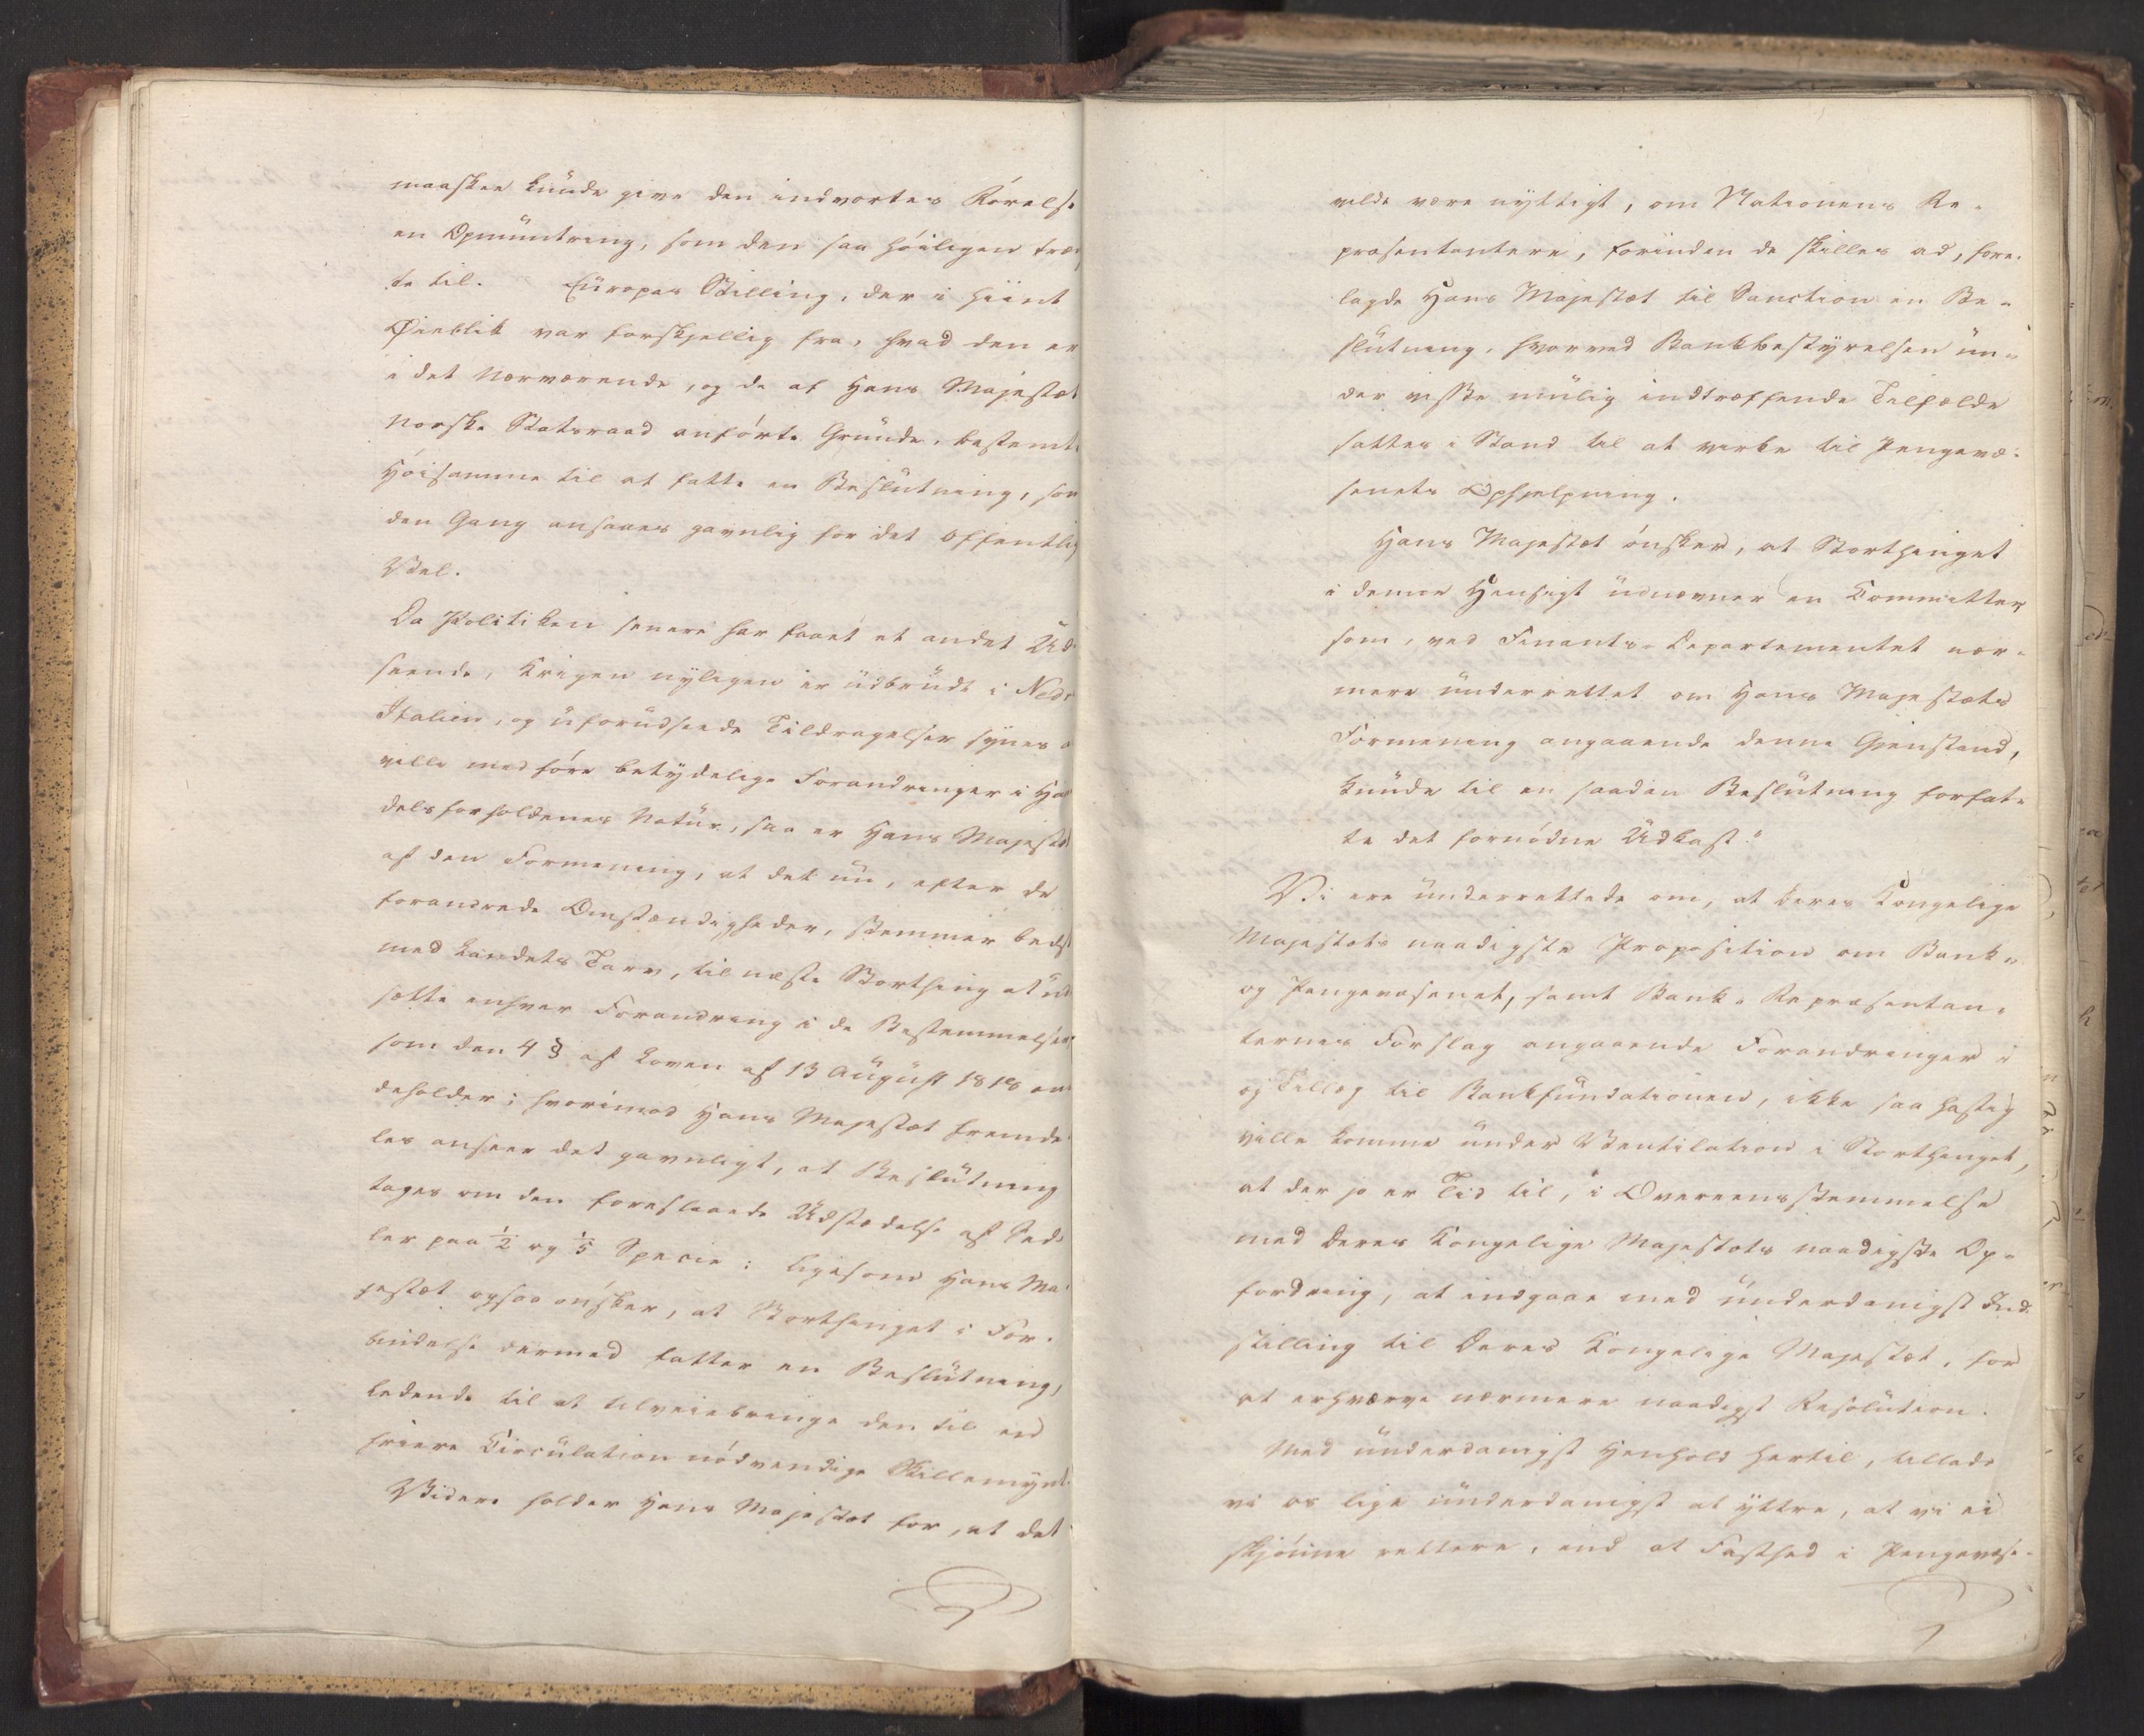 maaskee kunde give den indvortes Rörelse
en Opmuntring, som den saa höiligen træng
te til. Europas Stilling, der i hiint
Øieblik var forskjellig fra, hvad den er
i det Nærværende, og de af Hans Majestæt
Norske Statsraad anförte Grunde, bestemte
Höisamme til at fatte en Beslutning, som
den Gang ansaaes gavnlig for det offentlig
Vel.
Da Politiken senere har faaet et andet Ud
seende, Krigen nyligen er udbrudt i Nedr
Italien, og uforudseede Tildragelser synes a
ville medföre betydelige Forandringer i Han
delsforholdenes Natur, saa er Hans Majestæt
af den Formening, at det nu, efter de
forandrede Omstændigheder, stemmer bedst
med Landets Tarv, til næste Storthing at ud
sætte enhver Forandring i de Bestemmelser,
som den 4 § af Loven af 13 August 1818 in
deholder; hvorimod Hans Majestæt fremde
les anseer det gavnligt, at Beslutning
tages om den foreslaaede Udstædelse af Sed
ler paa ½ og ⅕ Specie; ligesom Hans Ma
jestæt ogsaa önsker, at Storthinget i For-
bindelse dermed fatter en Beslutning,
ledende til at tilveiebringe den til en
friere Circulation nödvendige Skillemynt.
Videre holder Hans Majestæt for, at det
vilde være nyttigt, om Nationens Re-
præsentantere, forinden de skilles ad, fore-
lagde Hans Majestæt til Sanction en Be-
slutning, hvorved Bankbestyrelsen un-
der visse mulig indtræffende Tilfælde
sættes i Stand til at virke til Pengevæ-
senets Ophjelpning.
Hans Majestæt önsker, at Storthinget
i denne Hensigt udnævner en Committee,
som, ved Finants-Departementet nær-
mere underrettet om Hans Majestæts
Formening angaaende denne Gjenstand,
kunde til en saadan Beslutning forfat-
te det fornödne Udkast."
Vi ere underrettede om, at Deres Kongelige
Majestæts naadigste Proposition om Bank-
og Pengevæsenet, samt Bank-Repræsentan-
ternes Forslag angaaende Forandringer i
og Tillæg til Bankfundationen, ikke saa hastig
ville komme under Ventilation i Storthinget,
at der jo er Tid til, i Overeensstemmelse
med Deres Kongelige Majestæts naadigste Op-
fordring, at indgaae med underdanigst Ind-
stilling til Deres Kongelige Majestæt, for
at erhverve nærmere naadigst Resolution.
Med underdanigst Henhold hertil, tillade
vi os lige underdanigst at yttre, at vi ei
skjönne rettere, end at Fasthed i Pengevæse-